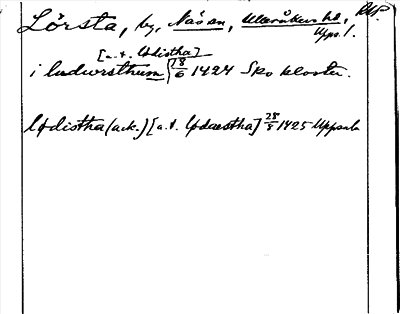 Lörsta, by, Näs sn, Waxåkers hd, RAP.
Upps. l.
[a. t. lødistha]
i ludwrsthum 18/6 1424 Sko kloster.
lødistha (ack.) [a. t. lødaestha] 28/8 1425 Uppsala